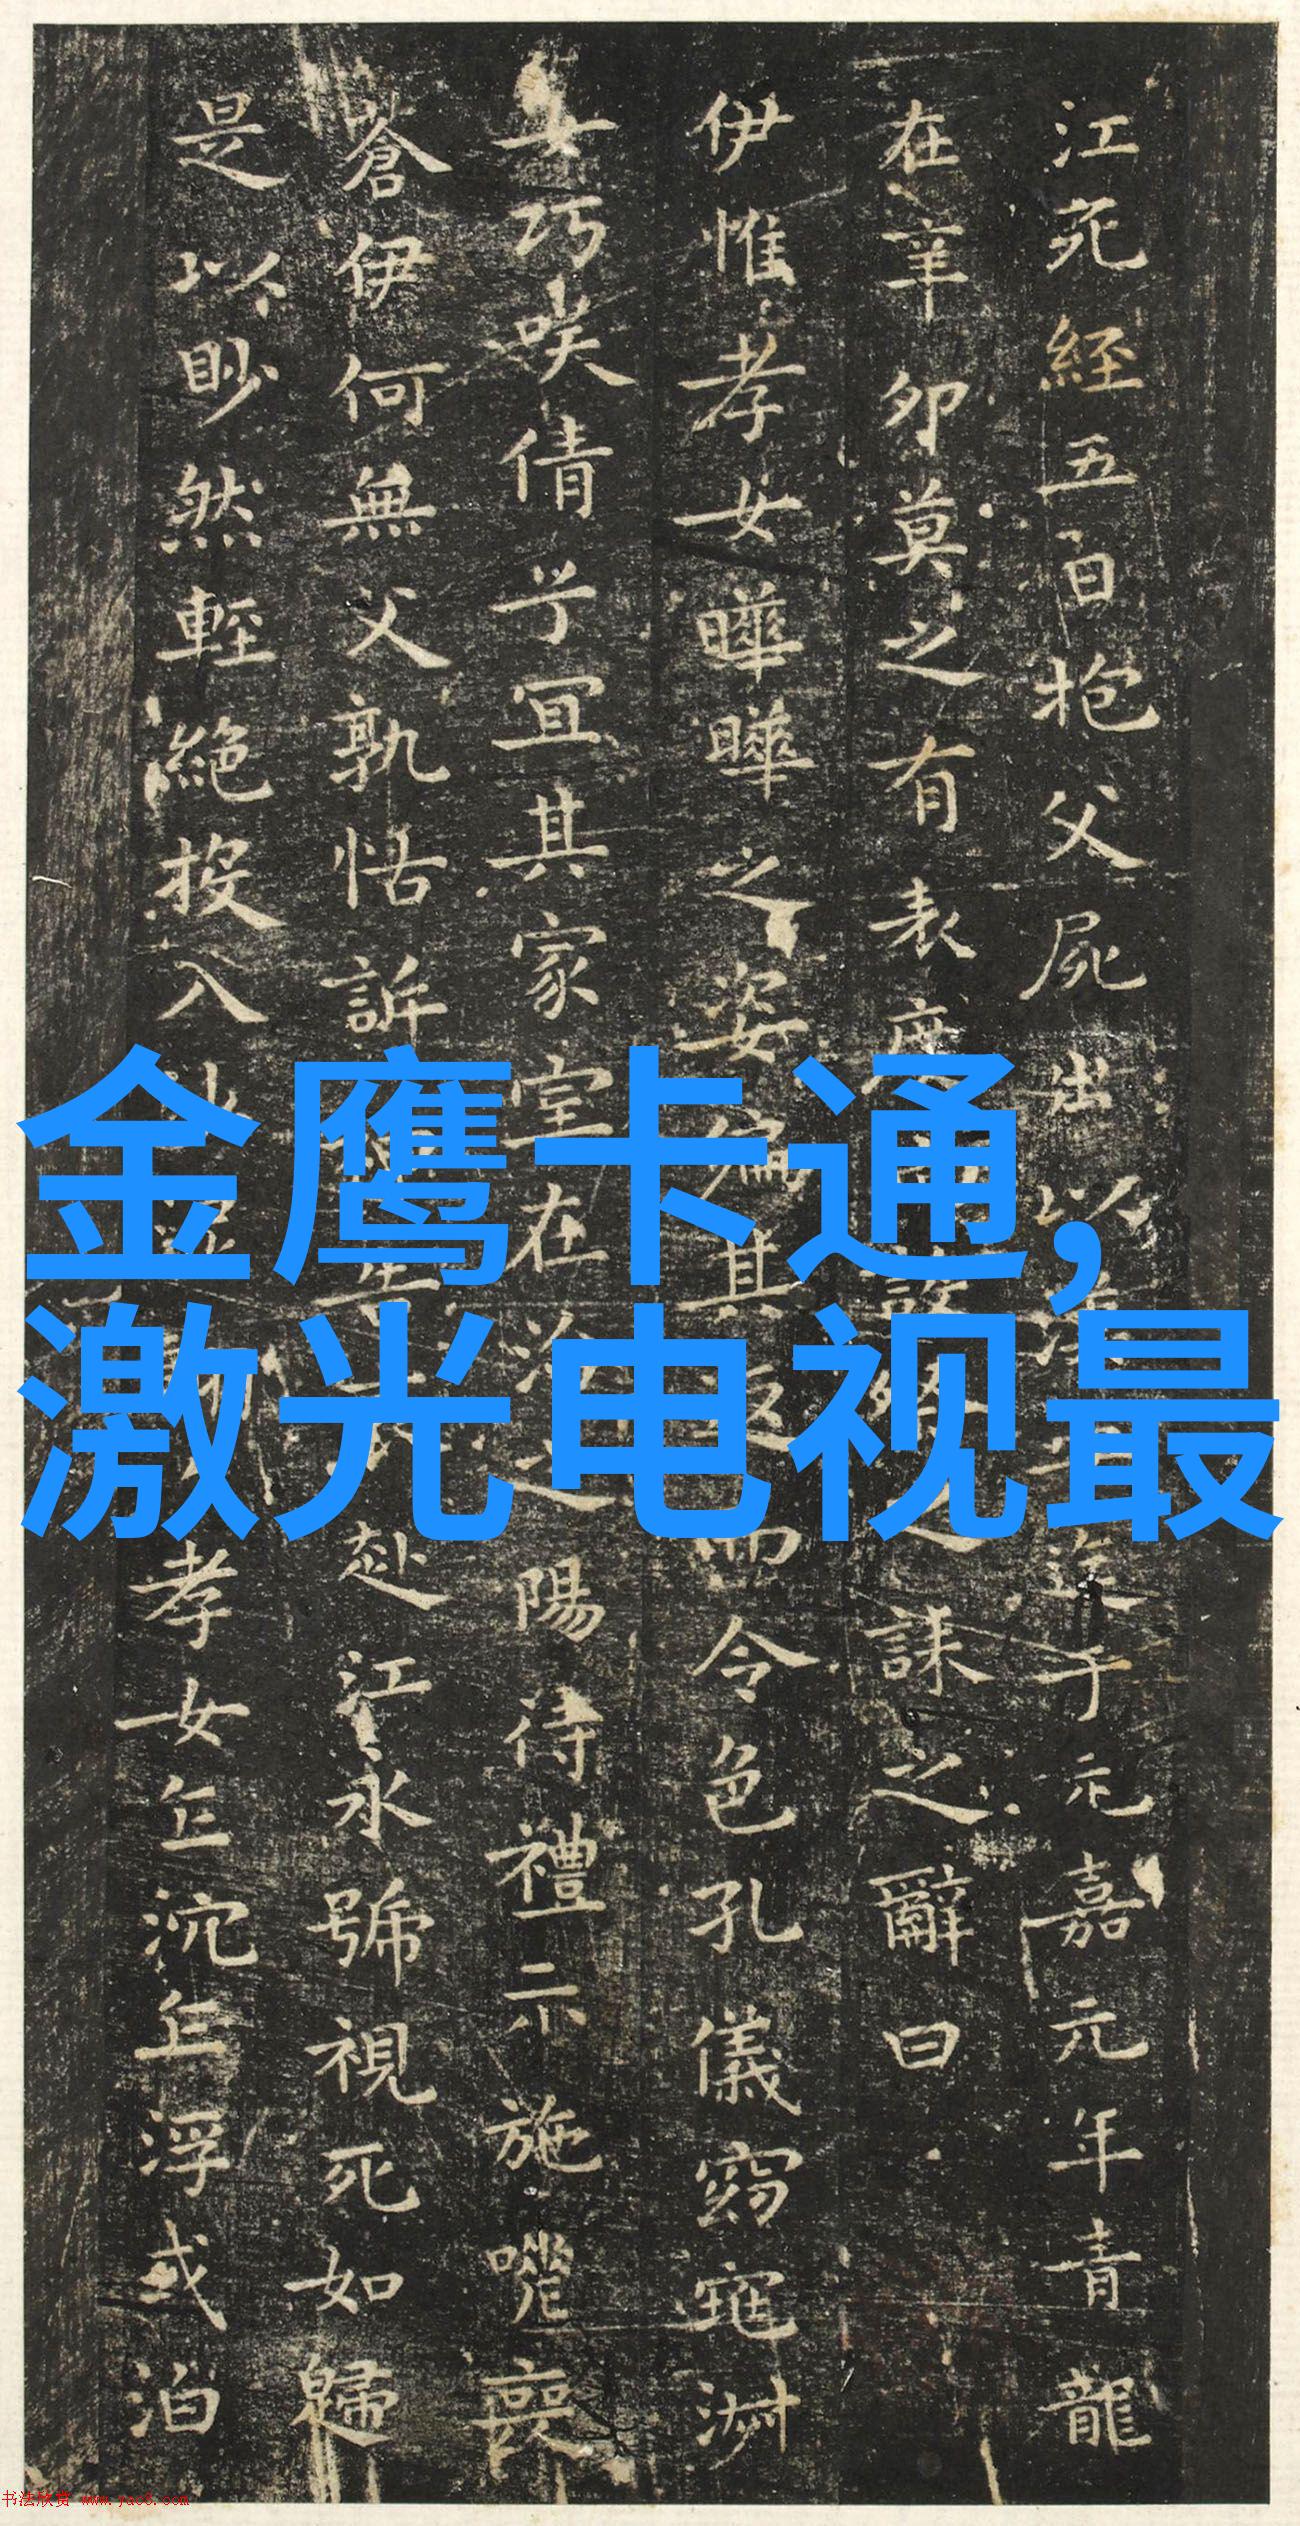 江死經五日抱父屍出以
在辛卯莫之有表度
誄之辭曰
伊惟孝女曄曄之姿偏其返而令色孔儀窈窕淑
女巧咲倩兮宜其家室在洽之陽待禮未施嗟喪
蒼伊何無父孰怙訴
赴江永號視死如歸
是以眇然輕絕投入
孝女乍沉乍浮或泊
于元嘉元年青龍
金鹰卡通,
激光电视最
书法欣赏 www.yac8.com